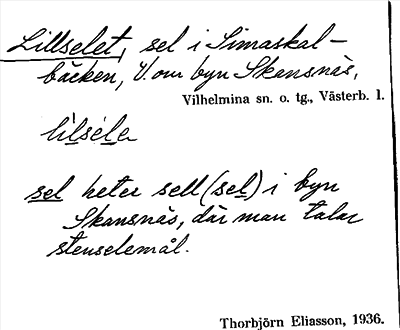 Lillselet, sel i Simaskal-
bäcken, V. om byn Skansnäs,
Vilhelmina sn. o. tg., Västerb. l.
lìlsélɐ
sel heter sell (sel) i byn
Skansnäs, där man talar
stenselemål.
Thorbjörn Eliasson, 1936.